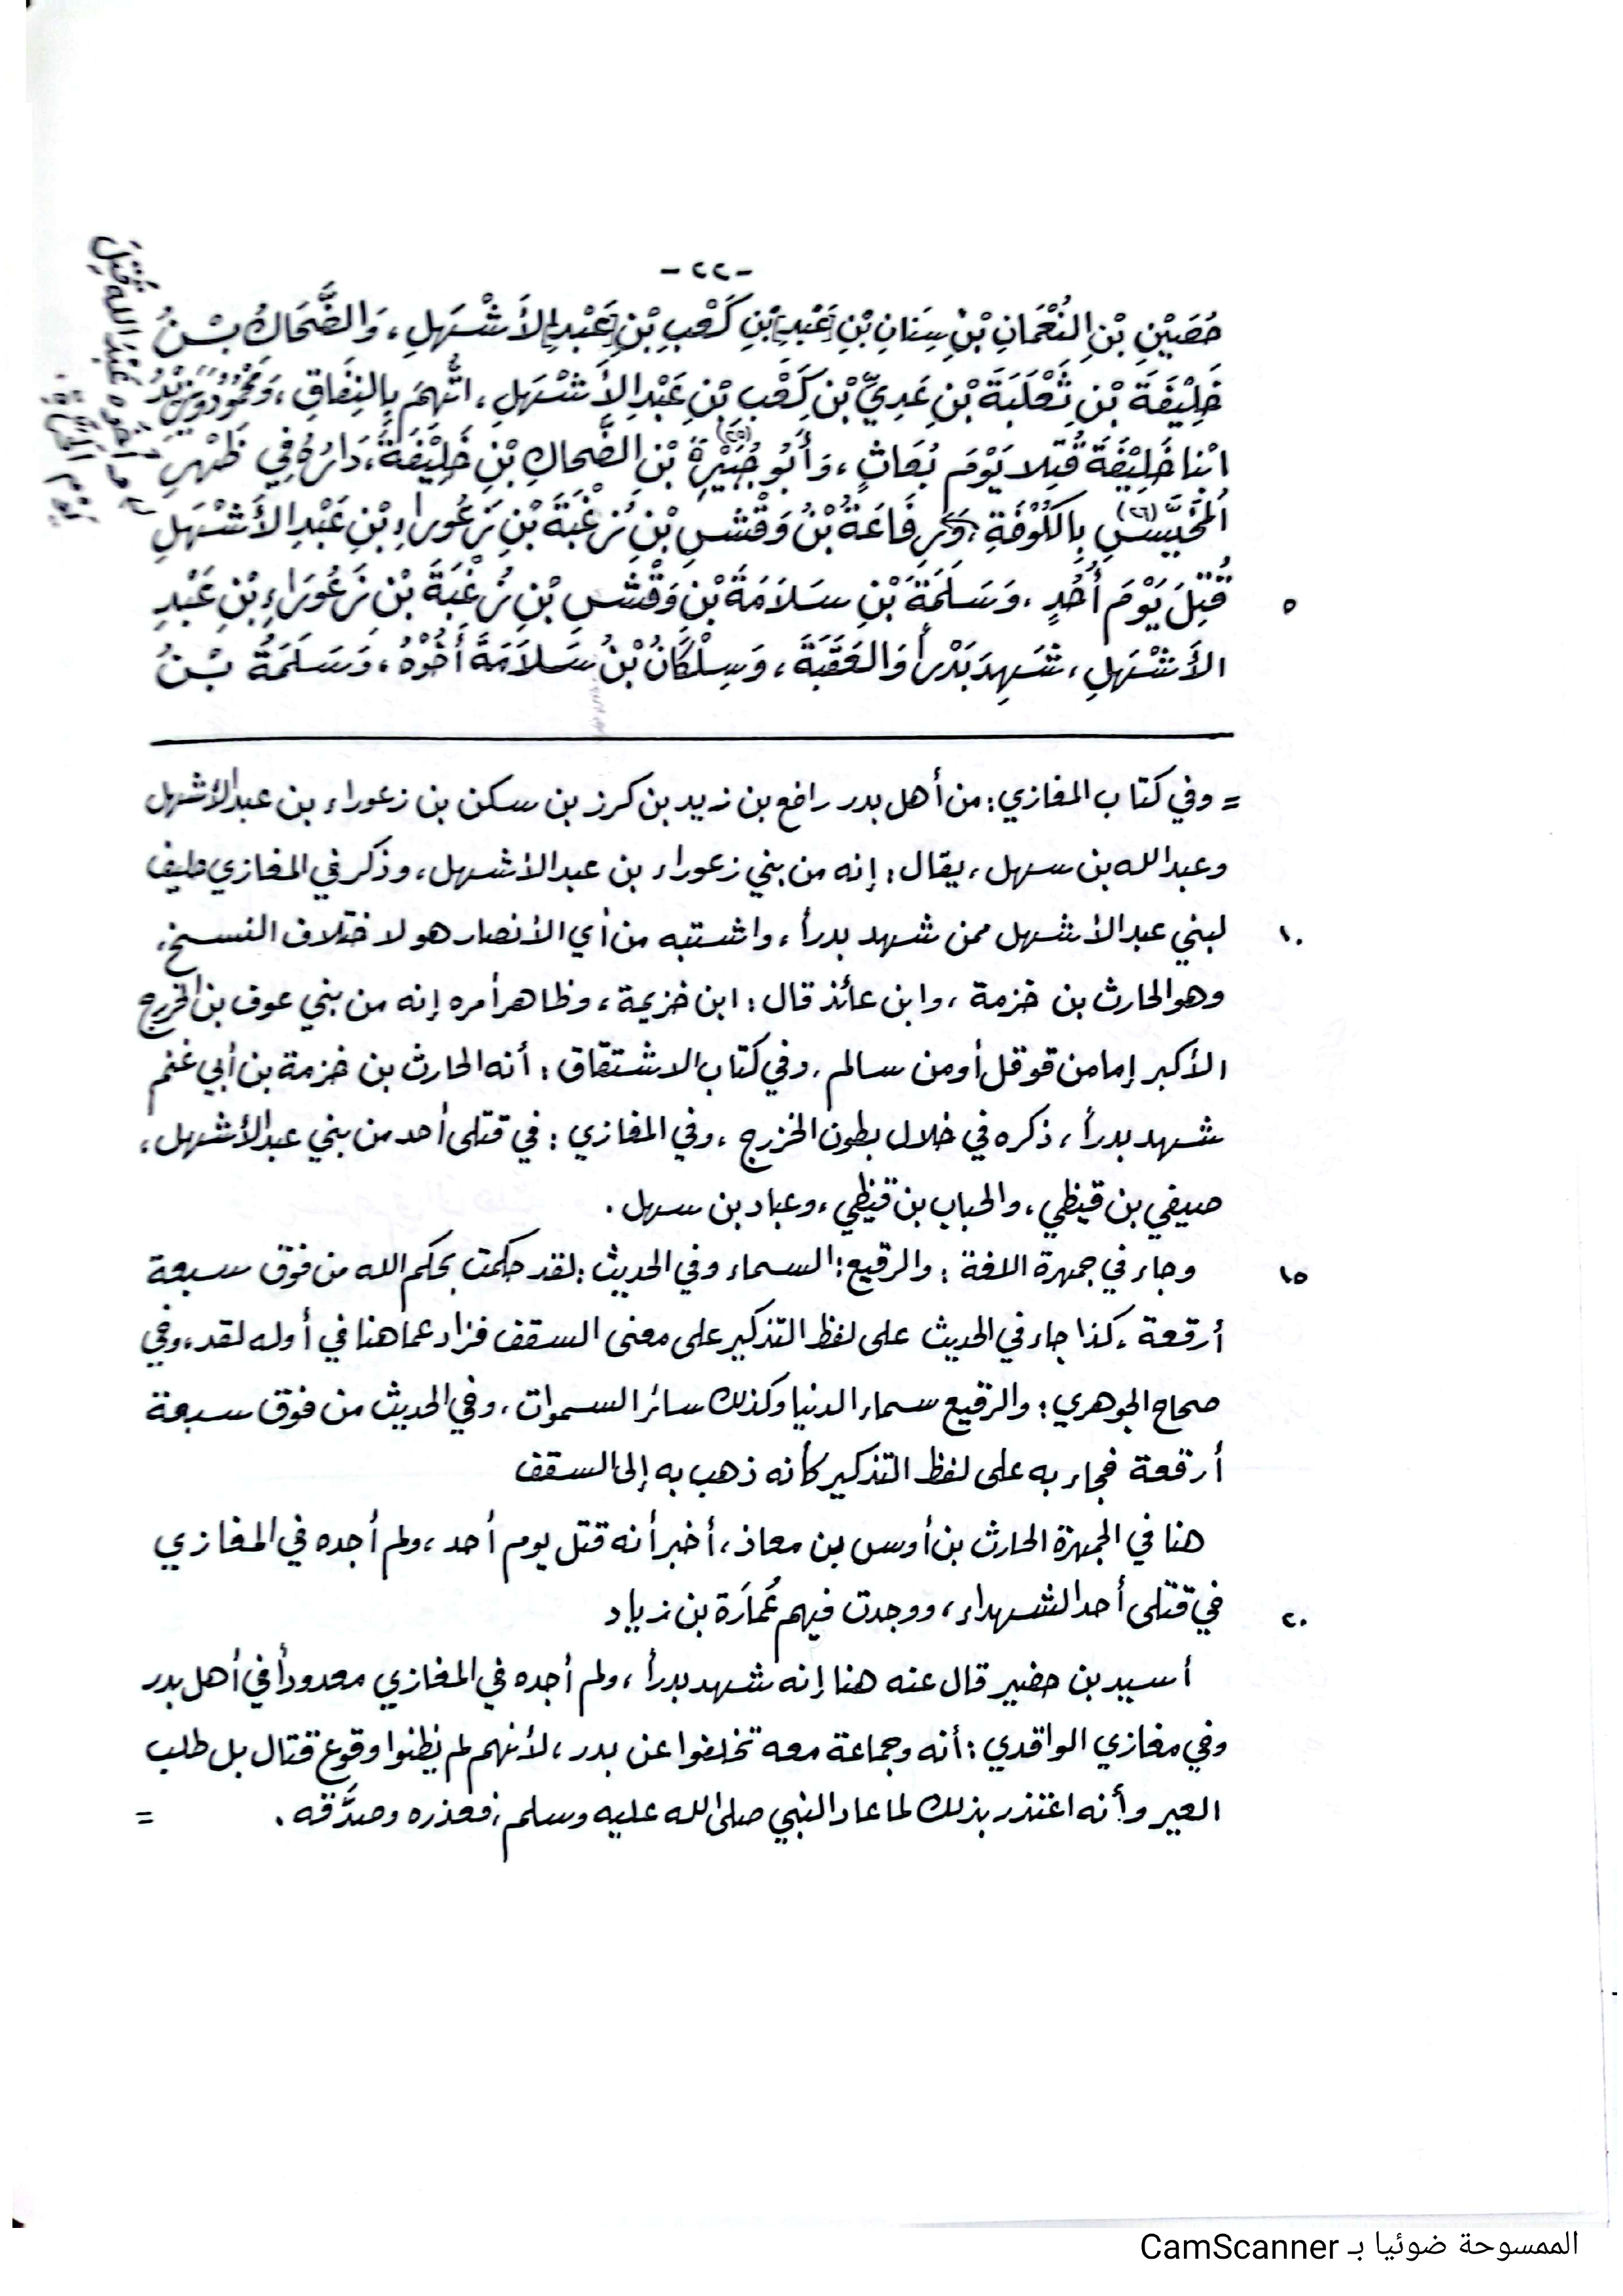 -٢٢-
حُصَيْنِ بْنِ النُّعْمَانِ بْنِ سِنَانِ بْنِ [عَبْدِ] بْنِ كَعْبِ بْنِ [عَبْدِ] الأَشْهَلِ، وَالضَّحَاكُ بْنُ
خَلِيْفَةَ بْنِ ثَعْلَبَةَ بْنِ عَدِيِّ بْنِ كَعْبِ بْنِ عَبْدِ الأَشْهَلِ، اتُّهِمَ بِالنِفَاقِ، وَمَحْمُوْدُ وَيَزِيْدُ
ابْنا خَلِيْفَةَ قُتِلا يَوْمَ بُعَاثٍ، وَأَبُو جُبَيْرَةَ (٢٥) بْنِ الضَّحاكِ بْنِ خَلِيْفَةَ، دَارُهُ فِي ظَهْرِ
المُخَيَّسِ (٢٦) بِالكُوْفَةِ، وَرِفَاعَةُ بْنُ وَقْشِ بْنِ زُغْبَةَ بْنِ زَعُوراءِ بْنِ عَبْدِ الأَشْهَلِ
قُتِلَ يَوْمَ أُحُدٍ، وَسَلَمَةَ بْنِ سَلَامَةَ بْنِ وَقْشِ بْنِ زُغْبَةَ بْنِ زَعُوَراءِ بْنِ عَبْدِ
٥
الأَشْهَلِ، شَهِدَ بَدْراً وَالعَقَبَةَ، وَسِلْكَانُ بْنُ سَلاَمَةَ أَخُوْهُ، وَسَلَمَةُ بْنُ
أخوه عَبْدُ الله قُتِلَ
يَوْمَ
= وفي كتاب المغازي: من أهل بدر رافع بن زيد بن كرز بن سكن بن زعوراء بن عبد الأشهل
وعبد الله بن سهل، يقال: إنه من بني زعوراء بن عبد الأشهل، وذكر في المغازي حليف
لبني عبد الأشهل ممن شهد بدراً، واشتبه من أي الأنصار هو لاختلاف النسخ،
١٠
وهو الحارث بن خزمة، وابن عائذ قال: ابن خزيمة، وظاهر أمره إنه من بني عوف بن الخزرج
الأكبر إما من قوقل أو من سالم، وفي كتاب الاشتقاق: أنه الحارث بن خزمة بن أبي غنم
شهد بدراً، ذكره في خلال بطون الخزرج، وفي المغازي: في قتلى أحد من بني عبد الأشهل،
صيفي بن قيظي، والحباب بن قيظي، وعباد بن سهل.
وجاء في جمهرة اللغة: والرقيع: السماء وفي الحديث: لقد حكمت بحكم الله من فوق سبعة
١٥
أرقعة، كذا جاء في الحديث على لفظ التذكير على معنى السقف فزاد عما هنا في أوله لقد، وفي
صحاح الجوهري: والرقيع سماء الدنيا وكذلك سائر السموات، وفي الحديث من فوق سبعة
أرقعة فجاء به على لفظ التذكير كأنه ذهب به إلى السقف
هنا في الجمهرة الحارث بن أوس بن معاذ، أخبر أنه قتل يوم أحد، ولم أجده في المغازي
في قتلى أحد الشهداء، ووجدت فيهم عُمَارَة بن زياد
٢٠
أسيد بن حضير قال عنه هنا إنه شهد بدراً، ولم أجده في المغازي معدوداً في أهل بدر
وفي مغازي الواقدي: أنه وجماعة معه تخلفوا عن بدر، لأنهم لم يظنوا وقوع قتال بل طلب
العير وأنه اعتذر بذلك لما عاد النبي صلى الله عليه وسلم، فعذره وصدَّقه. =
الممسوحة ضوئيا بـ CamScanner